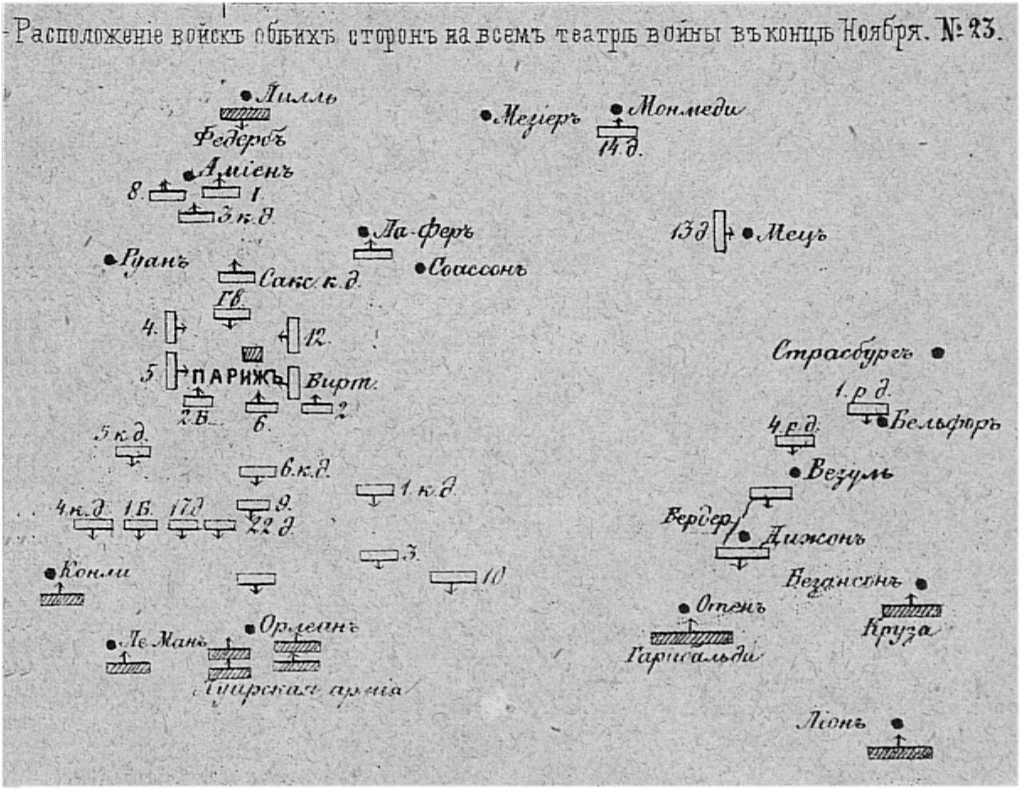 Расположеніе войскъ обѣихъ сторонъ на всемъ театрѣ войны въ концѣ Ноября. № 23.
Лилль
Федербъ
Мезіеръ
Монмеди
14.д.
Аміенъ
8.
1.
3.к.д.
Ла-Феръ
13д
Мецъ
Руанъ
Соассонъ
Сакс.к.д.
Гв.
4.
12.
Страсбургъ
5.
ПАРИЖЪ
Вирт.
1.р.д.
2.Б.
6.
2.
Бельфоръ
4.р.д.
5к.д.
6.к.д.
Везуль
1.к.д.
4.к.д.
1.Б.
17д
9.
22д
Вердер
Дижонъ
3.
10
Конли
Безансонъ
Отенъ
Круза
Орлеанъ
Ле Манъ
Гарибальди
Луирская армія
Ліонъ